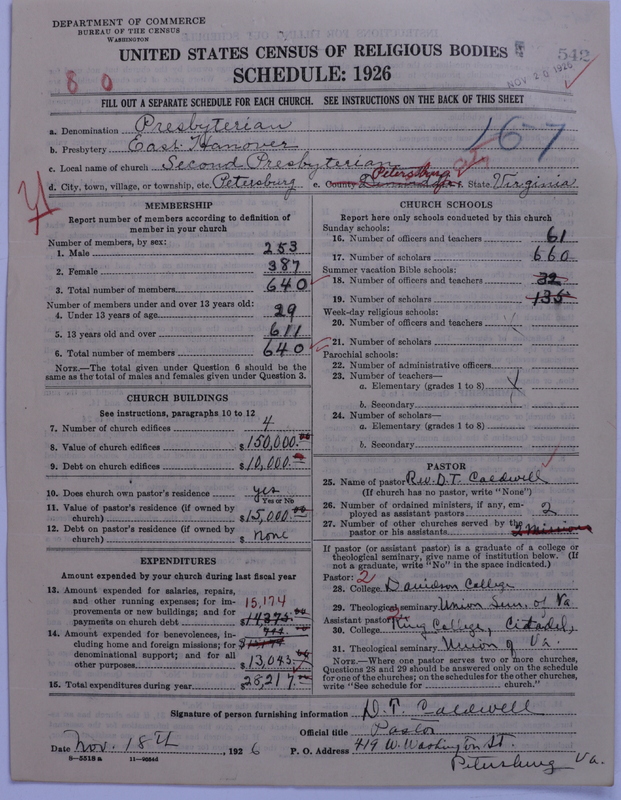 DEPARTMENT OF COMMERCE
BUREAU OF THE CENSUS
WASHINGTON
UNITED STATES CENSUS OF RELIGIOUS BODIES
542
SCHEDULE: 1926
NOV 20 1926
8 0
FILL OUT A SEPARATE SCHEDULE FOR EACH CHURCH. SEE INSTRUCTIONS ON THE BACK OF THIS SHEET
a. Denomination Presbyterian
167
b. Presbytery East Hanover
c. Local name of church Second Presbyterian
d. City, town, village, or township, etc. Petersburg e. County Petersburg City f. State Virginia
MEMBERSHIP
Report number of members according to definition of
member in your church
Number of members, by sex:
1. Male 253
2. Female 387
3. Total number of members 640
Number of members under and over 13 years old:
4. Under 13 years of age 29
5. 13 years old and over 611
6. Total number of members 640
NOTE.—The total given under Question 6 should be
same as the total of males and females given under Question 3.
CHURCH BUILDINGS
See instructions, paragraphs 10 to 12
7. Number of church edifices 4
8. Value of church edifices $150,000.00
9. Debt on church edifices $10,000.
10. Does church own pastor's residence yes
Yes or No
11. Value of pastor's residence (if owned by
church) $15,000.00
12. Debt on pastor's residence (if owned by
church) $ none
EXPENDITURES
Amount expended by your church during last fiscal year
13. Amount expended for salaries, repairs,
and other running expenses; for im-
provements or new buildings; and for
payments on church debt 15,174
$14,375.00
14. Amount expended for benevolences, in-
cluding home and foreign missions; for
denominational support; and for all
other purposes $13,043.00
15. Total expenditures during year $28,217.00
CHURCH SCHOOLS
Report here only schools conducted by this church
Sunday schools:
16. Number of officers and teachers 61
17. Number of scholars 660
Summer vacation Bible schools:
18. Number of officers and teachers 32
19. Number of scholars 135
Week-day religious schools:
20. Number of officers and teachers
21. Number of scholars
Parochial schools:
22. Number of administrative officers
23. Number of teachers—
a. Elementary (grades 1 to 8)
b. Secondary
24. Number of scholars—
a. Elementary (grades 1 to 8)
b. Secondary
PASTOR
25. Name of pastor Rev. D. T. Caldwell
(If church has no pastor, write "None")
26. Number of ordained ministers, if any, em-
ployed as assistant pastors 2
27. Number of other churches served by the
pastor or his assistants 2 Missions
If pastor (or assistant pastor) is a graduate of a college or
theological seminary, give name of institution below. (If
not a graduate, write "No" in the space indicated.)
Pastor: 2
28. College Davidson College
29. Theological seminary Union Sem. of Va
Assistant pastor:
30. College King College, Citadel,
31. Theological seminary Union of Va.
NOTE.—Where one pastor serves two or more churches,
Questions 28 and 29 should be answered only on the schedule
for one of the churches; on the schedules for the other churches,
write "See schedule for church."
Signature of person furnishing information D. T. Caldwell
Official title Pastor
Date Nov. 18th, 1926 P. O. Address 419 W. Washington St.
Petersburg Va.
8—5518a